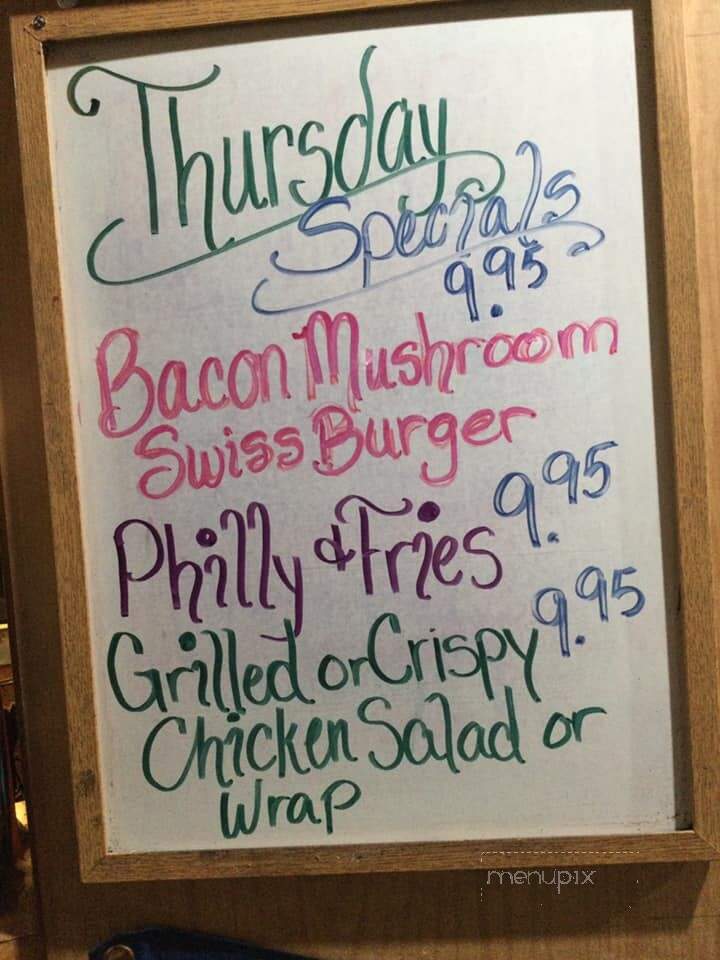 Thursday
Specials
9.95
Bacon Mushroom
Swiss Burger
9.95
Philly & Fries
9.95
Grilled or Crispy
Chicken Salad or
Wrap
menupix